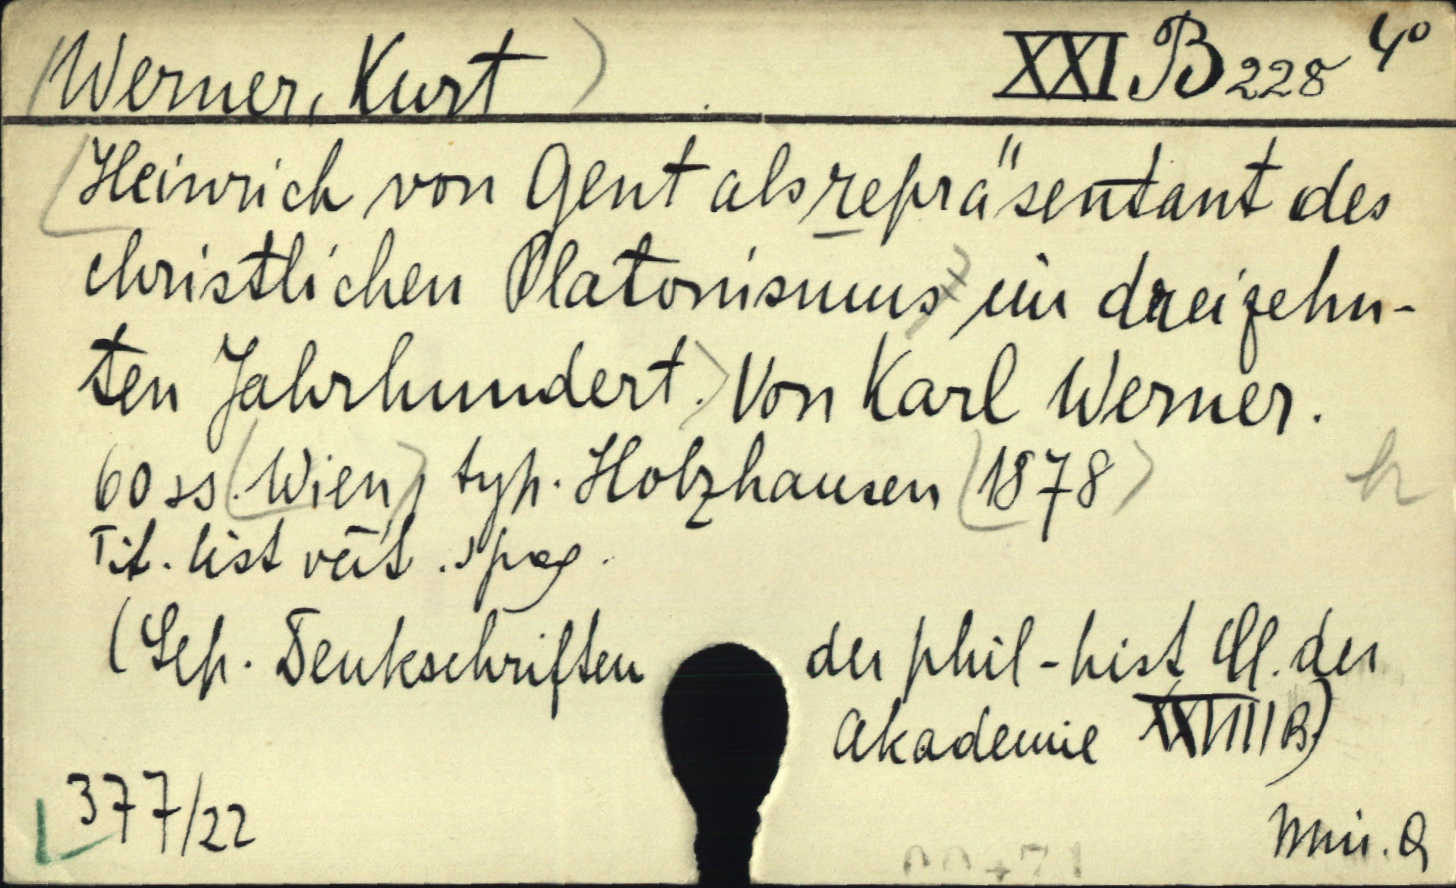 (Werner, Kurt) XXI B 228 4°
(Heinrich von Gent als repräsentant des
christlichen Platonismus im dreizehn-
ten Jahrhundert.) Von Karl Werner.
60 ss. (Wien), typ. Holzhausen (1878)
Tit. hist vert. spag.
(Sep. Denkschriften der phil-hist Cl. der
Akademie B)
377/22